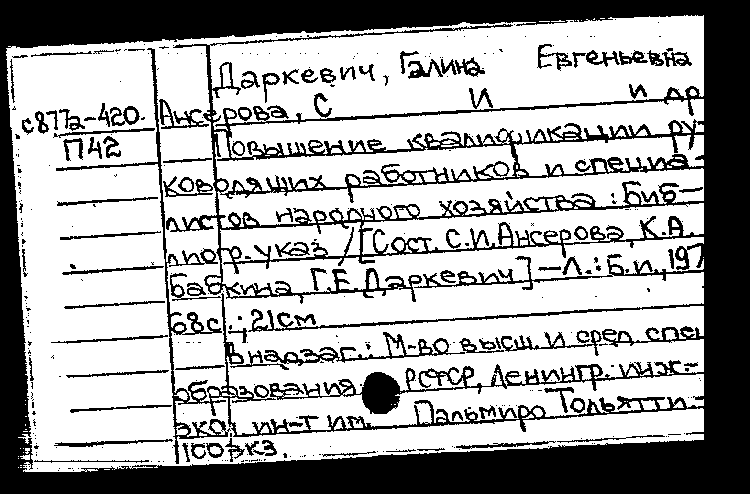 Даркевич, Галина Евгеньевна
с877а-420. Ансерова, С И и др
П42 Повышение квалификации ру-
ководящих работников и специа-
листов народного хозяйства : Биб-
лиогр. указ / [Сост. С.И. Ансерова, К.А.
Бабкина, Г.Е. Даркевич] — Л. : Б.и., 197
68с. ; 21см
В надзаг. : М-во высш. и сред. спец
образования РСФСР, Ленингр. инж-
экон ин-т им. Пальмиро Тольятти. -
1100экз.